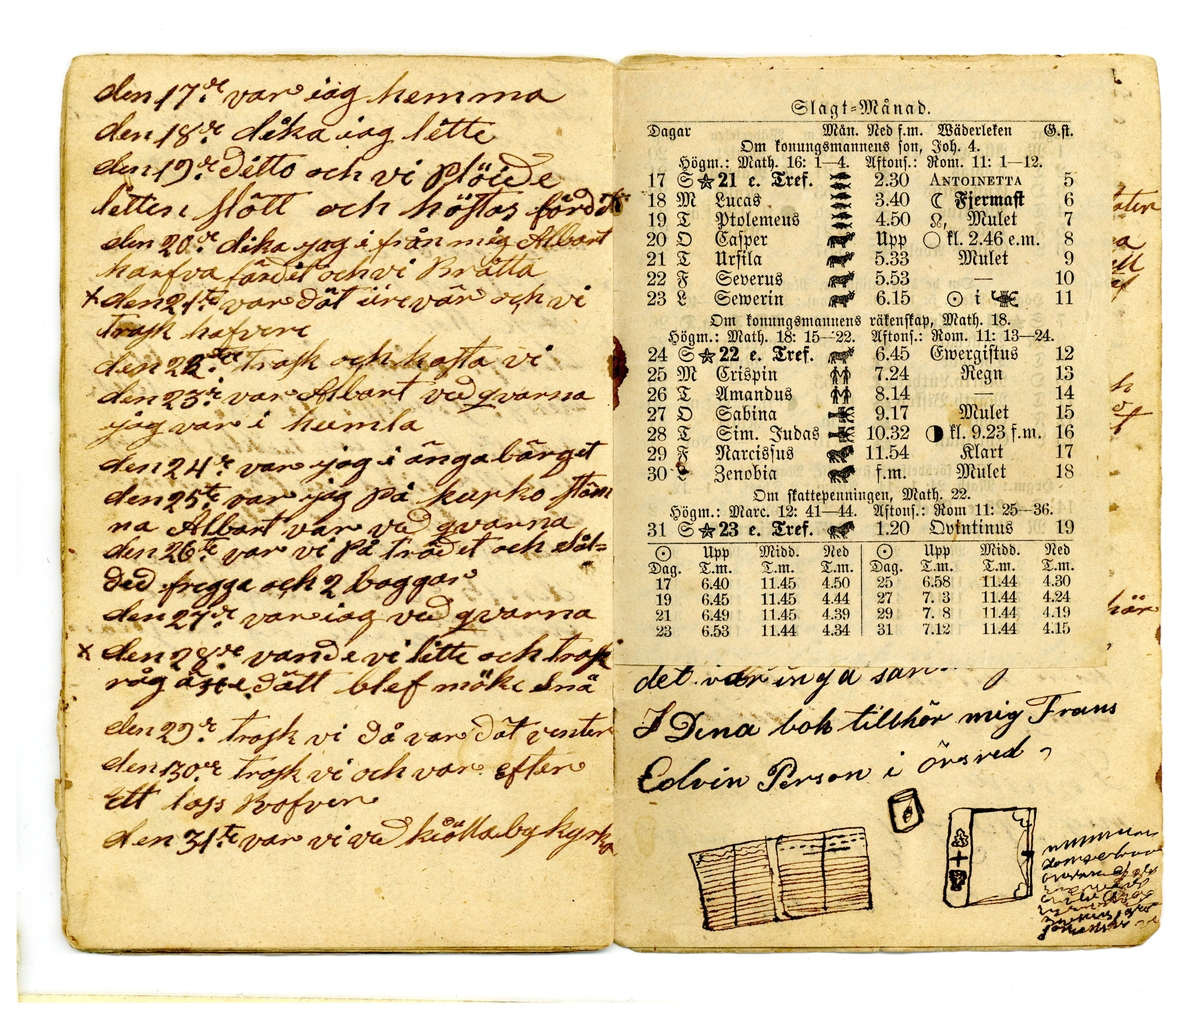 den 17de var iag hemma
den 18de dika iag lette
den 19de ditto och vi plöide
litten slått och höstas färdit
den 20de dika jag i från mig Albart
harfva färdit och vi Bråtta
x den 21te var dät ure vär och vi
trosk hafvere
den 22dra trosk och kasta vi
den 23de var Albart ved qvarna
jag var i humla
den 24de var jag i ånga bärget
den 25te var jag på kurko stäm
na Albart var ved qvarna
den 26te var vi på trådet och sål=
ded frigga och 2 baggar
den 27de var iag ved qvarna
x den 28de vande vi litte och trosk
råg dätt blef möke snä
den 29de trosk vi då var dät venter
den 30de trosk vi och var efter
Ett lass
den 31te var vi ved kiölla by kyrka
Slagt=Månad.
Dagar Mån. Ned f.m. Wäderleken G.st.
Om konungsmannens son, Joh. 4.
Högm.: Math. 16: 1—4. Aftons.: Rom. 11: 1—12.
17 S ★ 21 e. Tref. 2.30 Antoinetta 5
18 M Lucas 3.40 ☾ Fjermast 6
19 T Ptolemeus 4.50 ☊, Mulet 7
20 O Casper Upp ○ kl. 2.46 e.m. 8
21 T Ursila 5.33 Mulet 9
22 F Severus 5.53 — 10
23 L Sewerin 6.15 ☉ i 11
Om konungsmannens räkenskap, Math. 18.
Högm.: Math. 18: 15—22. Aftons.: Rom. 11: 13—24.
24 S ★ 22 e. Tref. 6.45 Ewergistus 12
25 M Crispin 7.24 Regn 13
26 T Amandus 8.14 — 14
27 O Sabina 9.17 Mulet 15
28 T Sim. Judas 10.32 ◑ kl. 9.23 f.m. 16
29 F Narcissus 11.54 Klart 17
30 L Zenobia f.m. Mulet 18
Om skattepenningen, Math. 22.
Högm.: Marc. 12: 41—44. Aftons.: Rom 11: 25—36.
31 S ★ 23 e. Tref. 1.20 Qvintinus 19
☉ Upp Midd. Ned ☉ Upp Midd. Ned
Dag. T.m. T.m. T.m. Dag. T.m. T.m. T.m.
17 6.40 11.45 4.50 25 6.58 11.44 4.30
19 6.45 11.45 4.44 27 7. 3 11.44 4.24
21 6.49 11.45 4.39 29 7. 8 11.44 4.19
23 6.53 11.44 4.34 31 7.12 11.44 4.15
det var inga
Dena bok tillhör mig Frans
Edvin Person i örsred